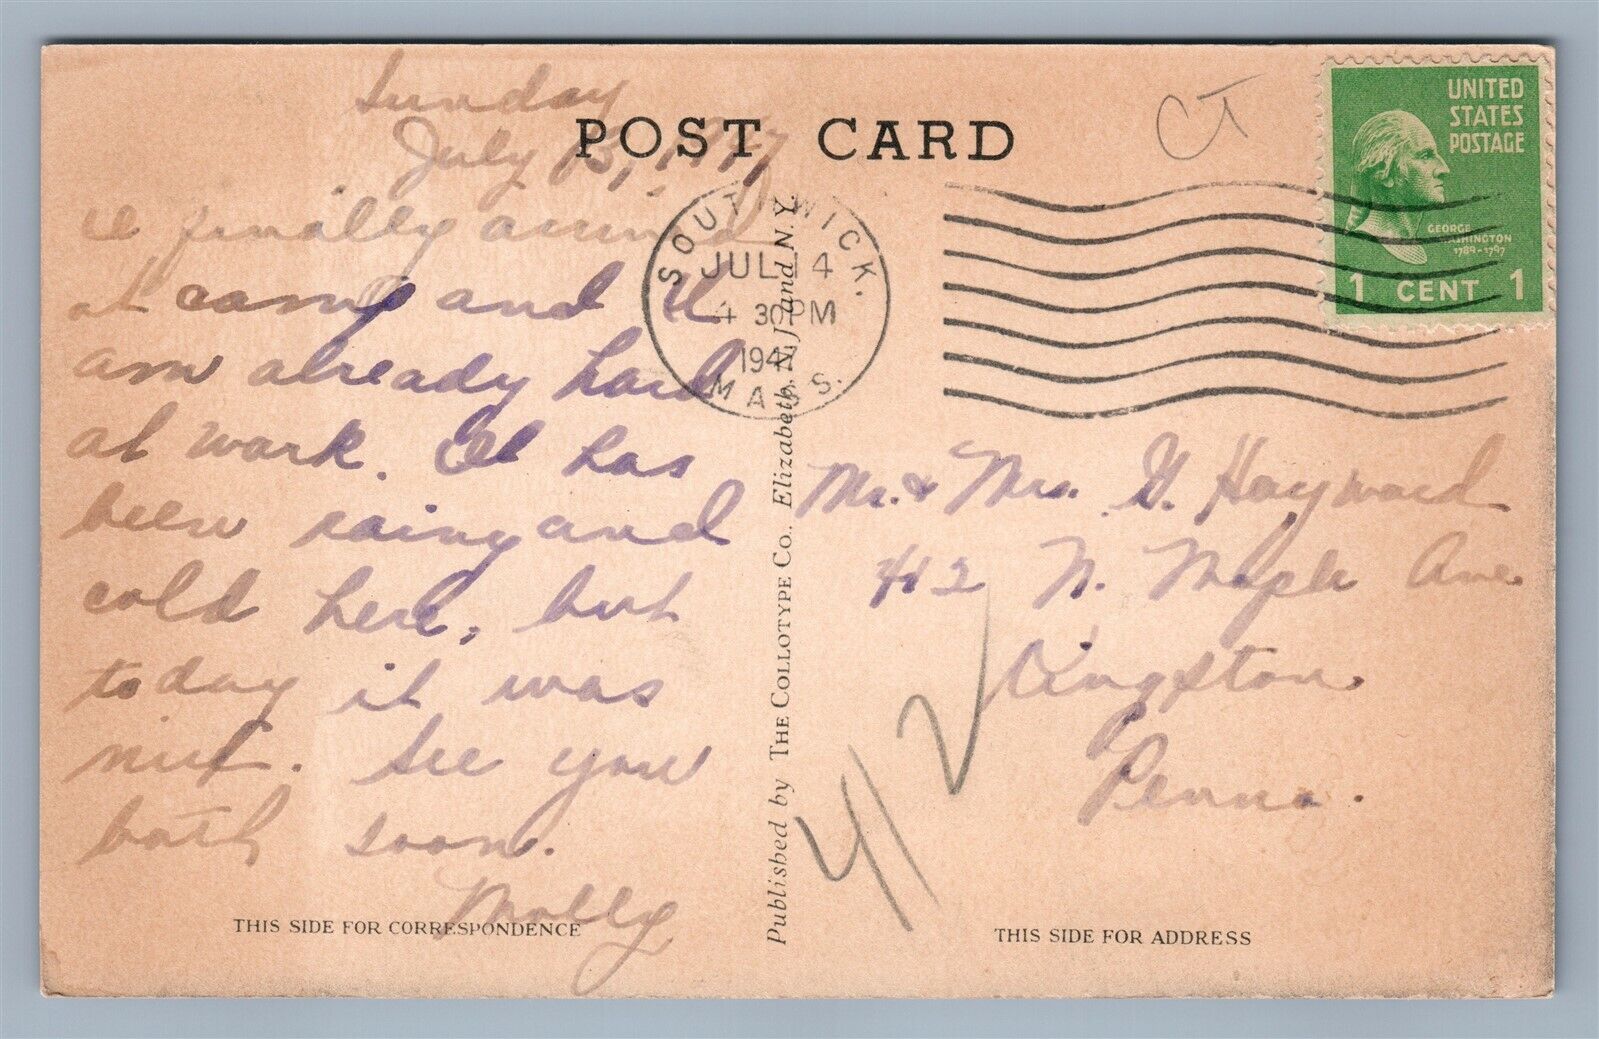 Sunday
July 13, 1947
I finally arrived
at camp and I
am already hard
at work. It has
been rainy and
cold here, but
today it was
nice. See you
both soon.
Molly
THIS SIDE FOR CORRESPONDENCE
POST CARD
Published by THE COLLOTYPE Co., Elizabeth, N.J. and N.Y.
SOUTHWICK,
JUL 14
4 30PM
1947
MASS.
CT
UNITED
STATES
POSTAGE
GEORGE
WASHINGTON
1789-1797
1 CENT 1
Mr. & Mrs. G. Hayward
412 N. Maple Ave.
Kingston
Penna.
412
THIS SIDE FOR ADDRESS